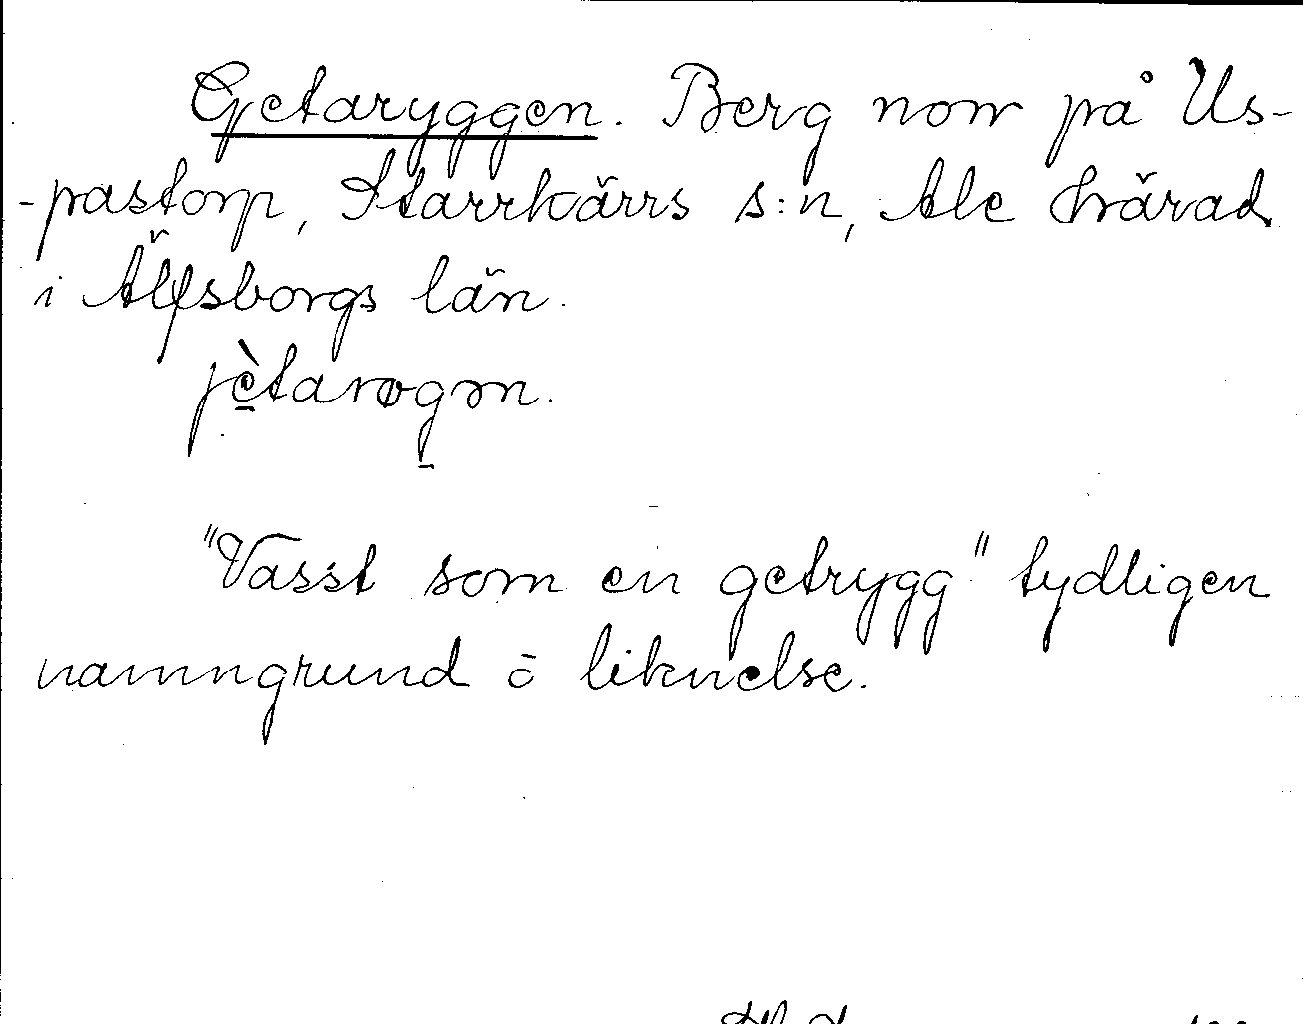 Getaryggen. Berg norr på Us-
-pastorp, Starrkärrs s:n, Ale härad
i Älfsborgs län.
jètarøgən.
"Vasst som en getrygg" tydligen
namngrund o liknelse.